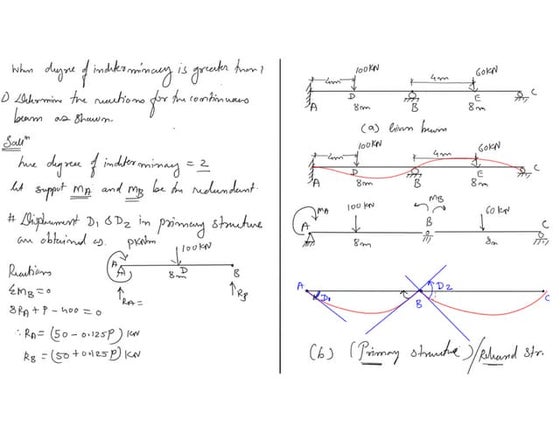 When degree of indeterminacy is greater than 1
1) Determine the reactions for the continuous
beam as shown.
Solⁿ
here degree of indeterminacy = 2
let support MA and MB be the redundant.
# Displacement D1 & D2 in primary structure
are obtained as.
PKNm
100KN
A
8m
D
B
RA =
RB
Reactions
ΣMB=0
8RA + P - 400 = 0
∴ RA = (50 - 0.125P) KN
RB = (50 + 0.125P) KN
100KN
60KN
4m
4m
A
D
B
E
C
8m
8m
(a) Given beam
100KN
60KN
4m
4m
A
D
B
E
C
8m
8m
MA
MB
100 KN
60 KN
A
B
C
8m
8m
A
D1
B
D2
C
(b) (Primary structure) / Released Str.